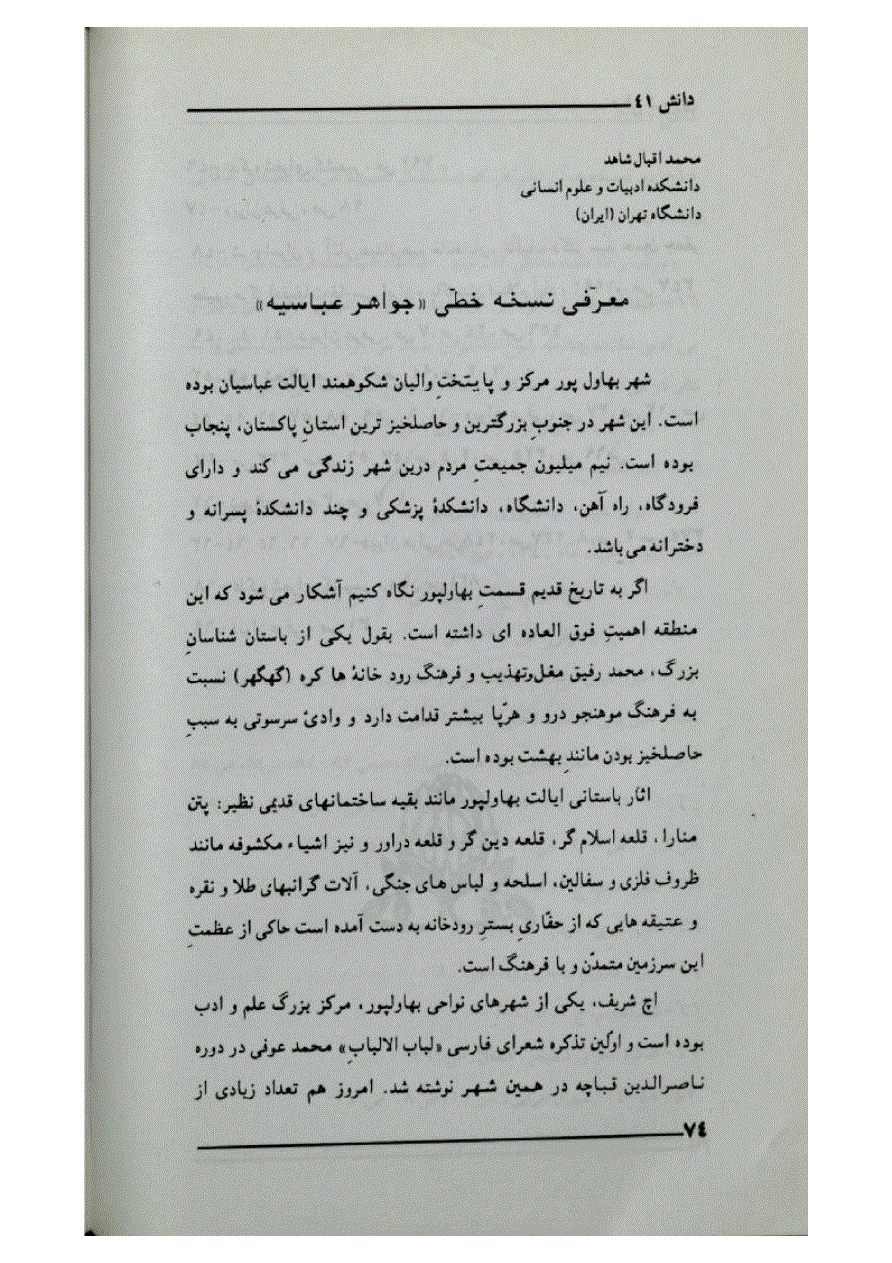 دانش ٤١
محمد اقبال شاهد
دانشکده ادبیات و علوم انسانی
دانشگاه تهران (ایران)
معرّفی نسخه خطّی «جواهر عباسیه»
شهر بهاول پور مرکز و پایتختِ والیان شکوهمند ایالت عباسیان بوده
است. این شهر در جنوبِ بزرگترین و حاصلخیز ترین استانِ پاکستان، پنجاب
بوده است. نیم میلیون جمیعتِ مردم درین شهر زندگی می کند و دارای
فرودگاه، راه آهن، دانشگاه، دانشکدهٔ پزشکی و چند دانشکدهٔ پسرانه و
دخترانه می باشد.
اگر به تاریخ قدیم قسمتِ بهاولپور نگاه کنیم آشکار می شود که این
منطقه اهمیتِ فوق العاده ای داشته است. بقول یکی از باستان شناسانِ
بزرگ، محمد رفیق مغل،تهذیب و فرهنگ رود خانهٔ ها کره (گهگهر) نسبت
به فرهنگ موهنجو درو و هرّپا بیشتر قدامت دارد و وادیٔ سرسوتی به سببِ
حاصلخیز بودن مانندِ بهشت بوده است.
اثار باستانی ایالت بهاولپور مانند بقیه ساختمانهای قدیمی نظیر: پتن
منارا، قلعه اسلام گر، قلعه دین گر و قلعه دراور و نیز اشیاء مکشوفه مانند
ظروف فلزی و سفالین، اسلحه و لباس های جنگی، آلات گرانبهای طلا و نقره
و عتیقه هایی که از حفّاریِ بسترِ رودخانه به دست آمده است حاکی از عظمتِ
این سرزمین متمدّن و با فرهنگ است.
اچ شریف، یکی از شهرهای نواحی بهارلپور، مرکز بزرگ علم و ادب
بوده است و اولّین تذکره شعرای فارسی «لباب الالباب» محمد عوفی در دوره
ناصرالدین قباچه در همین شهر نوشته شد. امروز هم تعداد زیادی از
٧٤